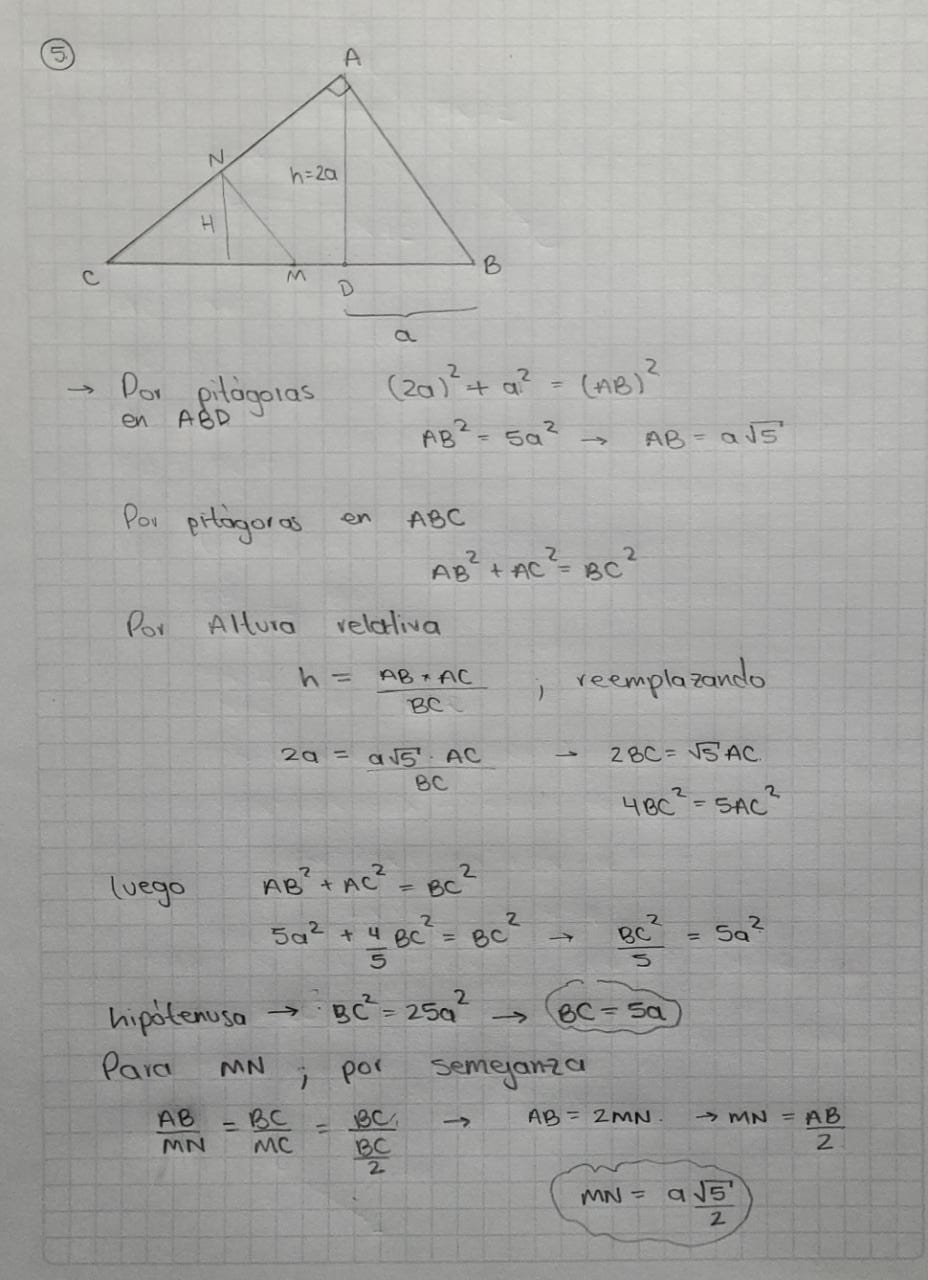 5.
A
N
h=2a
H
C
M
D
B
a
→ Por pitágoras (2a)² + a² = (AB)²
en ABD
AB² = 5a² → AB = a√5
Por pitágoras en ABC
AB² + AC² = BC²
Por Altura relativa
h = AB * AC / BC ; reemplazando
2a = a√5 · AC / BC → 2BC = √5 AC.
4BC² = 5AC²
luego AB² + AC² = BC²
5a² + 4/5 BC² = BC² → BC²/5 = 5a²
hipótenusa → BC² = 25a² → BC = 5a
Para MN ; por semejanza
AB/MN = BC/MC = BC/(BC/2) → AB = 2MN. → MN = AB/2
MN = a√5/2